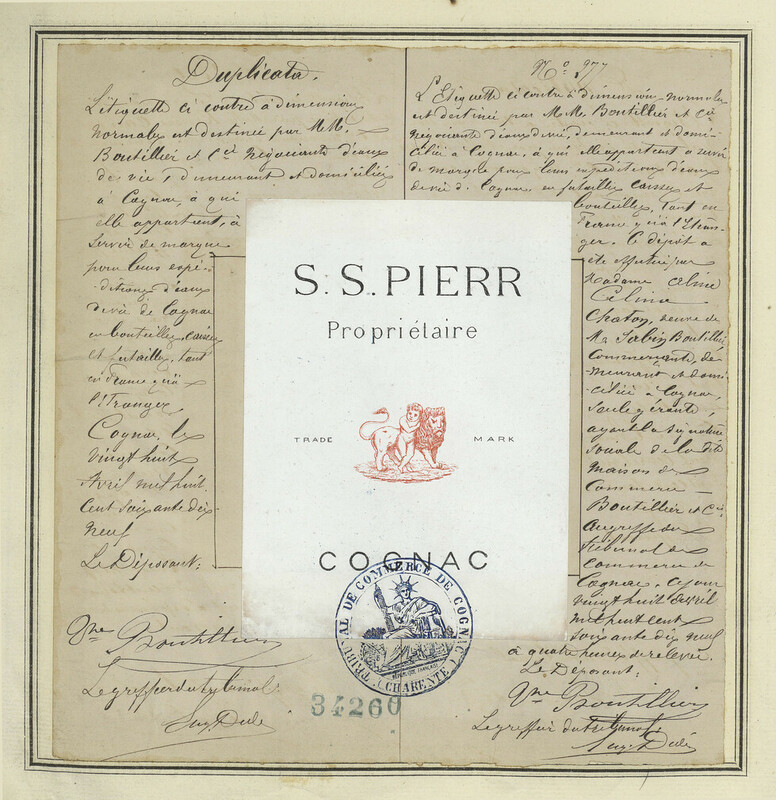 Duplicata.
L'étiquette ci contre à dimensions
normales est destinée par MM.
Boutillier et Cie Négociants d'eaux
de vie, demeurant et domiciliés
à Cognac, à qui
elle appartient, à
servir de marque
pour leurs expé-
ditions d'eaux
de vie de Cognac
en bouteilles, caisses
et futailles, tant
en France qu'à
l'Etranger.
Cognac, le
vingt huit
Avril mil huit
cent soixante dix
neuf
Le Déposant:
Vve Boutillier
Le greffier du tribunal
No 977
L'Etiquette ci contre à dimension normales
est destinée par MM. Boutillier et Cie
négociants d'eaux de vie, demeurant et domi-
ciliés à Cognac, à qui elle appartient a servir
de marque pour leurs expéditions d'eaux
de vie de Cognac en futailles caisses et
bouteilles, tant en
France qu'à l'Etran-
ger. Ce dépôt a
été effectué par
Madame Celine
Celina
Chaton, veuve de
Mr Sabin Boutillier
Commerçante, de-
meurant et domi-
ciliée à Cognac,
seule gérante,
ayant la signature
sociale de la dite
maison de
Commerce
Boutillier et Cie,
au greffe du
tribunal de
Commerce de
Cognac, ce jour
vingt huit avril
mil huit cent
soixante dix neuf
à quatre heures de relevée.
Le Déposant:
Vve Boutillier
Le greffier du tribunal
S. S. PIERR
Propriétaire
TRADE MARK
COGNAC
TRIBUNAL DE COMMERCE DE COGNAC
(CHARENTE)
REPUBLIQUE FRANÇAISE
34260